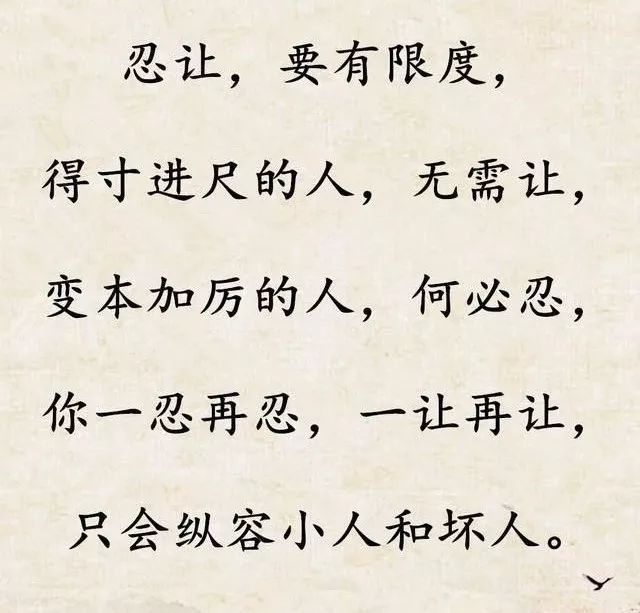 忍让，要有限度，
得寸进尺的人，无需让，
变本加厉的人，何必忍，
你一忍再忍，一让再让，
只会纵容小人和坏人。